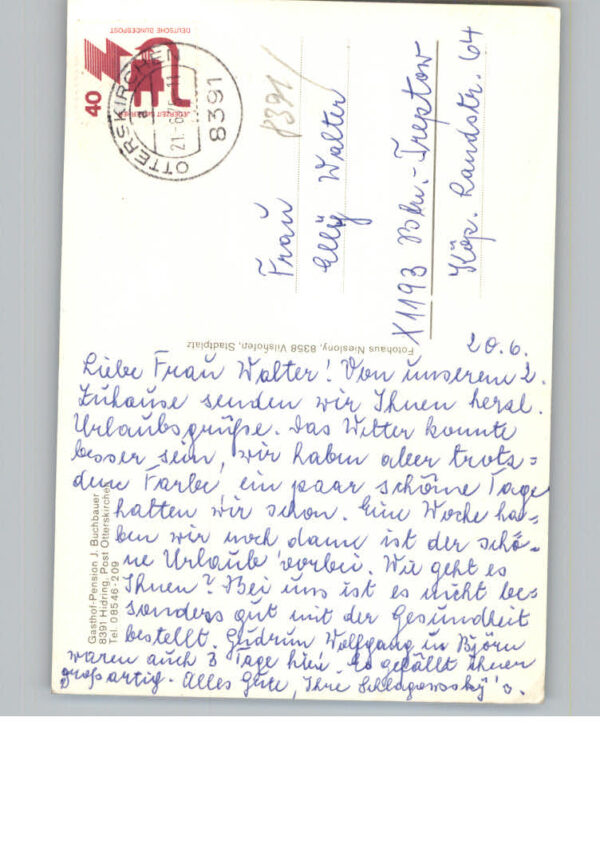 20.6.
Liebe Frau Walter! Von unserem 2.
Zuhause senden wir Ihnen herzl.
Urlaubsgrüße. Das Wetter konnte
besser sein, wir haben aber trotz=
dem Farbe, ein paar schöne Tage
hatten wir schon. Eine Woche ha=
ben wir noch dann ist der schö=
ne Urlaub vorbei. Wie geht es
Ihnen? Bei uns ist es nicht be=
sonders gut mit der Gesundheit
bestellt. Gudrun Wolfgang u Björn
waren auch 3 Tage hier. Es gefällt ihnen
großartig. Alles Gute, Ihre Schlagowsky's.
Frau
Elly Walter
X1193 Bln.-Treptow
Köp. Landstr. 64
8391
40
DEUTSCHE BUNDESPOST
JEDERZEIT SICHERHEIT
8391 OTTERSKIRCHEN
a
Fotohaus Niesiony, 8358 Vilshofen, Stadtplatz
Gasthof-Pension J. Buchbauer
8391 Hidring, Post Otterskirchen
Tel. 08546-209